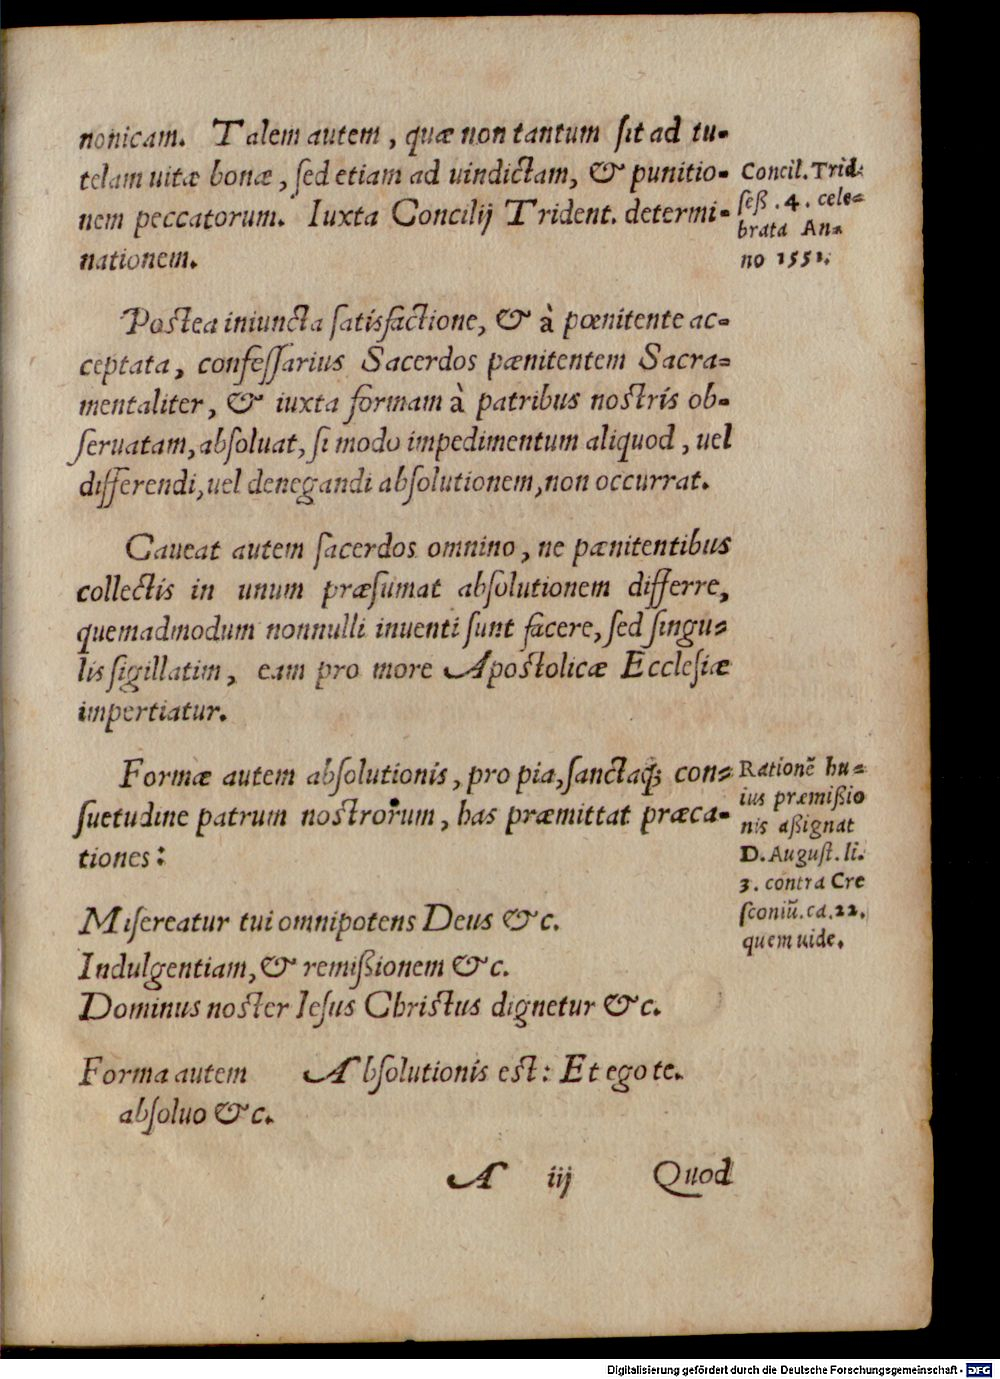 nonicam. Talem autem, quæ non tantum ſit ad tu-
telam uitæ bonæ, ſed etiam ad uindictam, & punitio-
nem peccatorum. Iuxta Concilij Trident. determi-
nationem.
Concil. Trid.
ſeß. 4. cele-
brata An-
no 1551.
Postea iniuncta ſatisfactione, & à pœnitente ac-
ceptata, confeſſarius Sacerdos pænitentem Sacra-
mentaliter, & iuxta formam à patribus nostris ob-
ſeruatam, abſoluat, ſi modo impedimentum aliquod, uel
differendi, uel denegandi abſolutionem, non occurrat.
Caueat autem ſacerdos omnino, ne pænitentibus
collectis in unum præſumat abſolutionem differre,
quemadmodum nonnulli inuenti ſunt facere, ſed ſingu-
lis ſigillatim, eam pro more Apostolicæ Eccleſiæ
impertiatur.
Formæ autem abſolutionis, pro pia, ſanctaq́; con-
ſuetudine patrum nostrorum, has præmittat præca-
tiones:
Rationē hu-
ius præmißio
nis aßignat
D. Auguſt. li.
3. contra Cre
ſconiū. ca. 22.
quem uide.
Miſereatur tui omnipotens Deus &c.
Indulgentiam, & remißionem &c.
Dominus noster Ieſus Christus dignetur &c.
Forma autem Abſolutionis est: Et ego te.
abſoluo &c.
A iij Quod
Digitalisierung gefördert durch die Deutsche Forschungsgemeinschaft - DFG